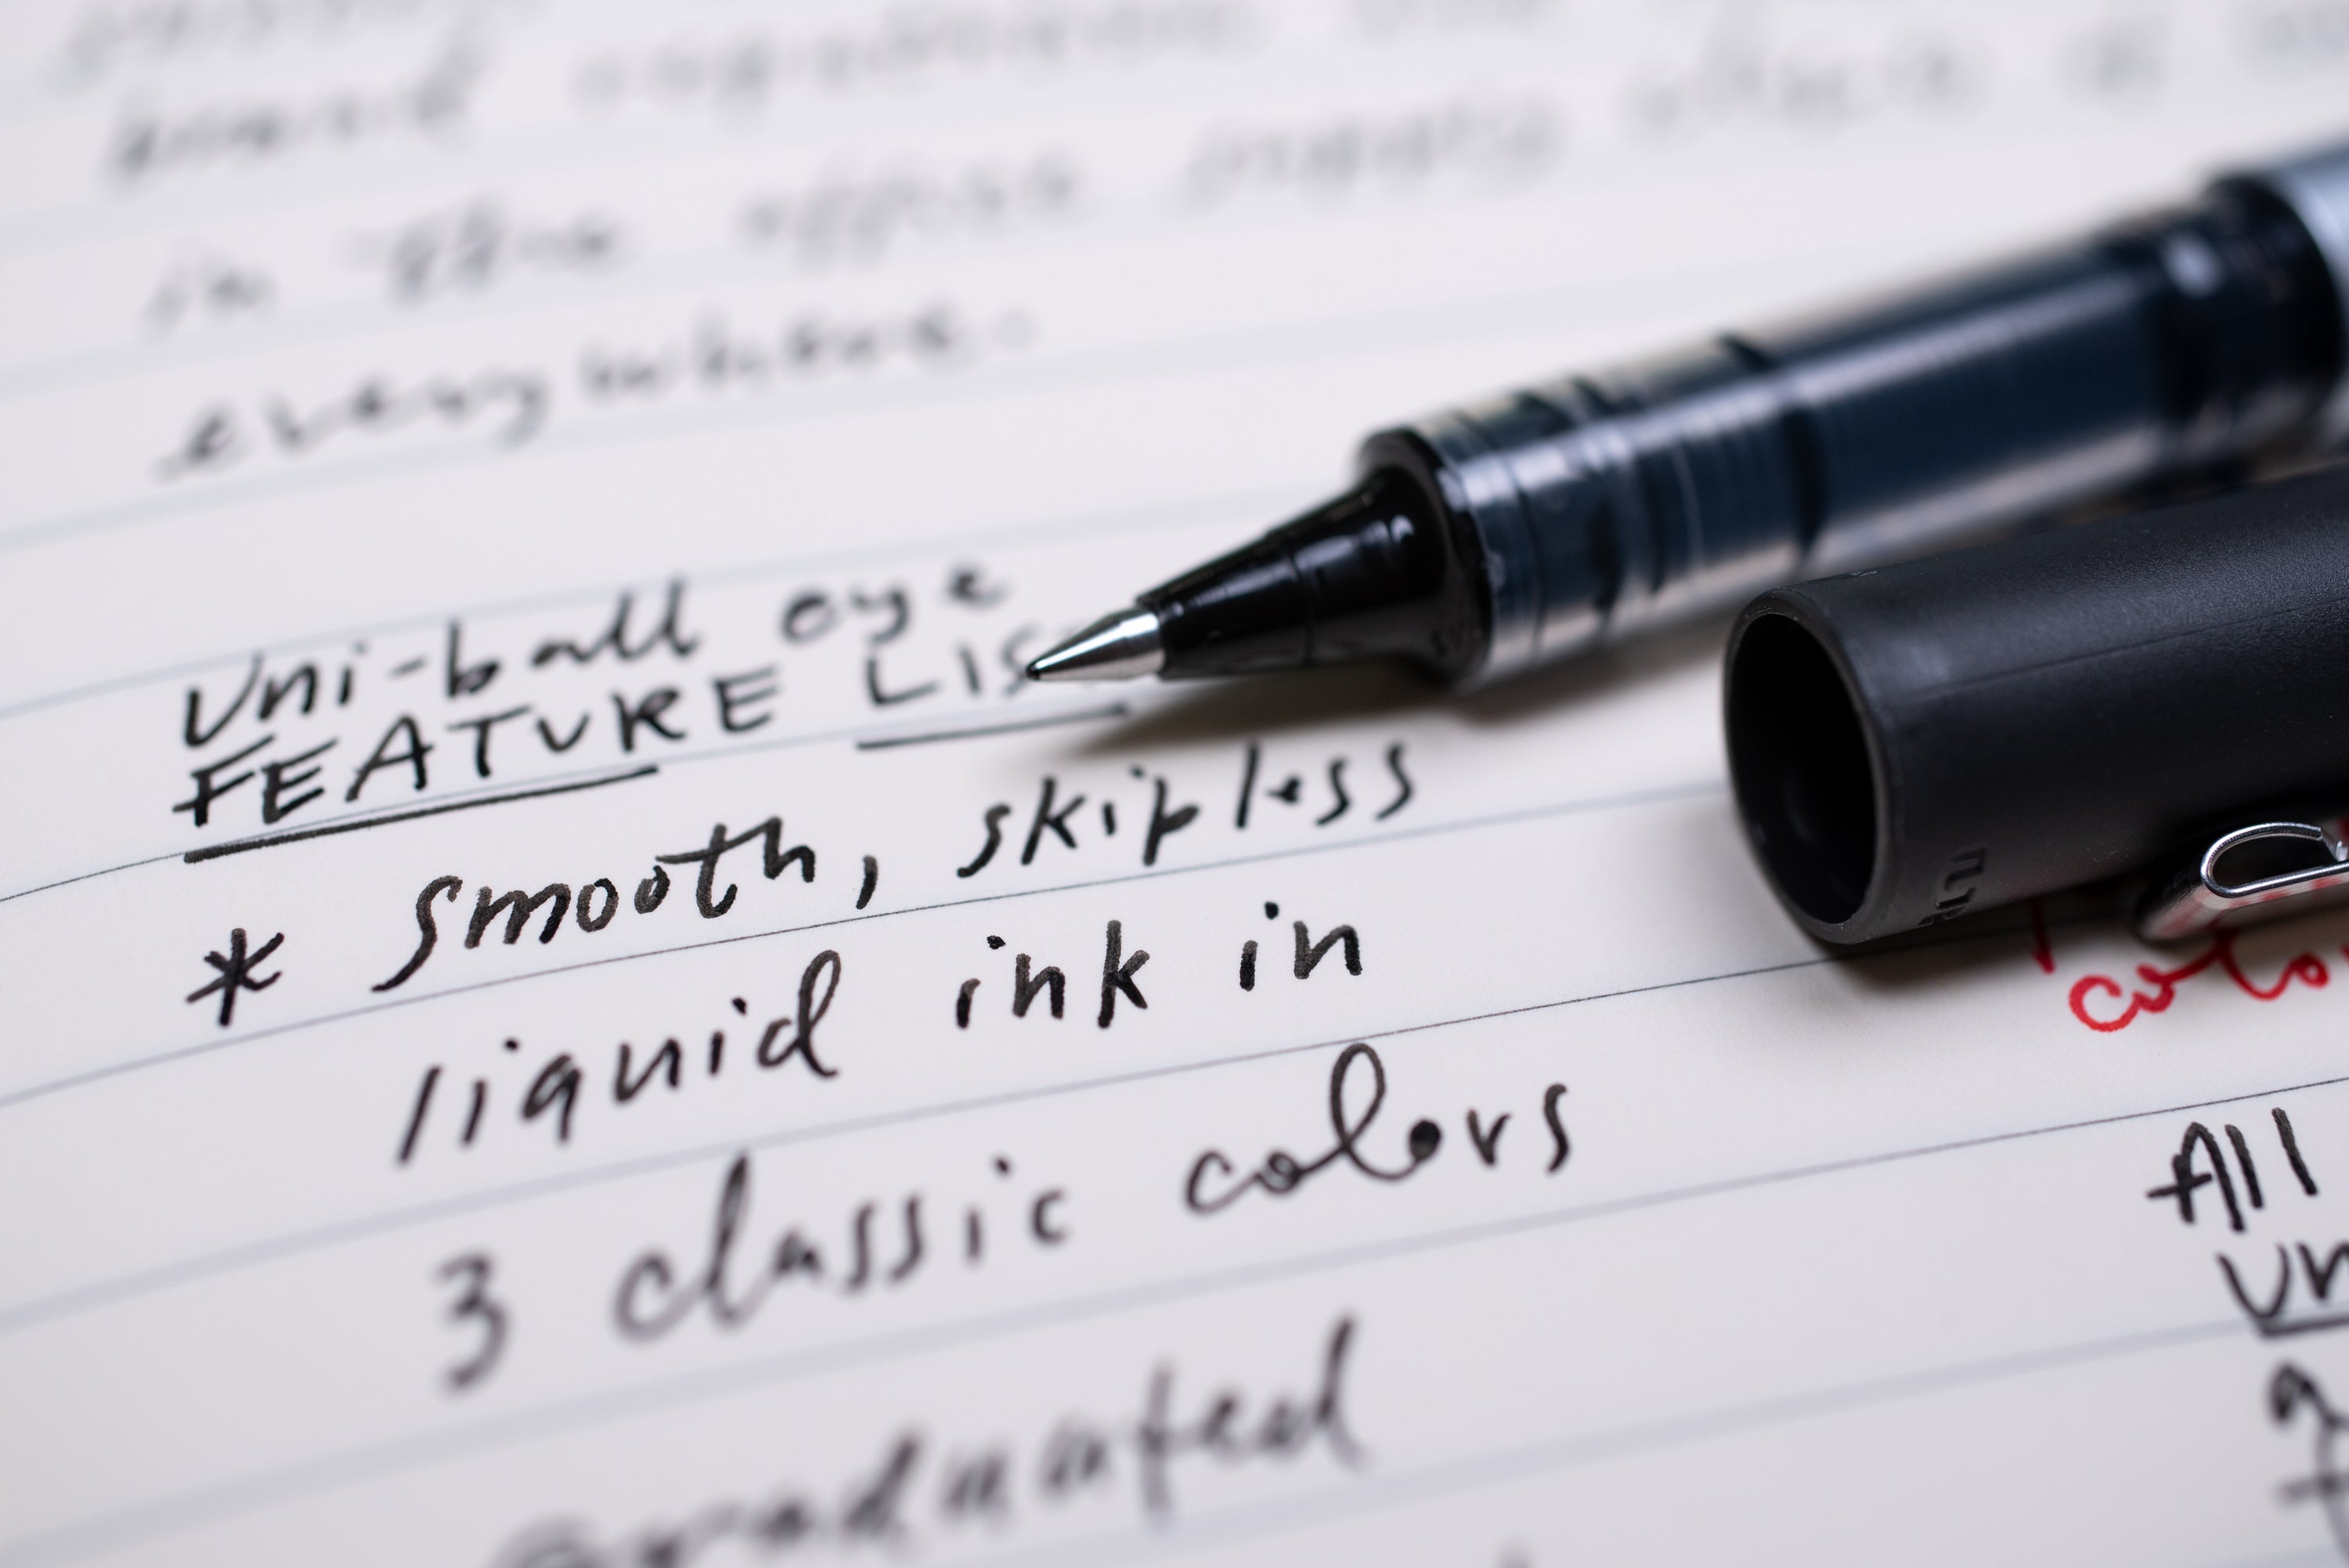 brand
in the office supply
everywhere.
Uni-ball eye
FEATURE LIS
* smooth, skipless
liquid ink in
3 classic colors
graduated
color
All
un